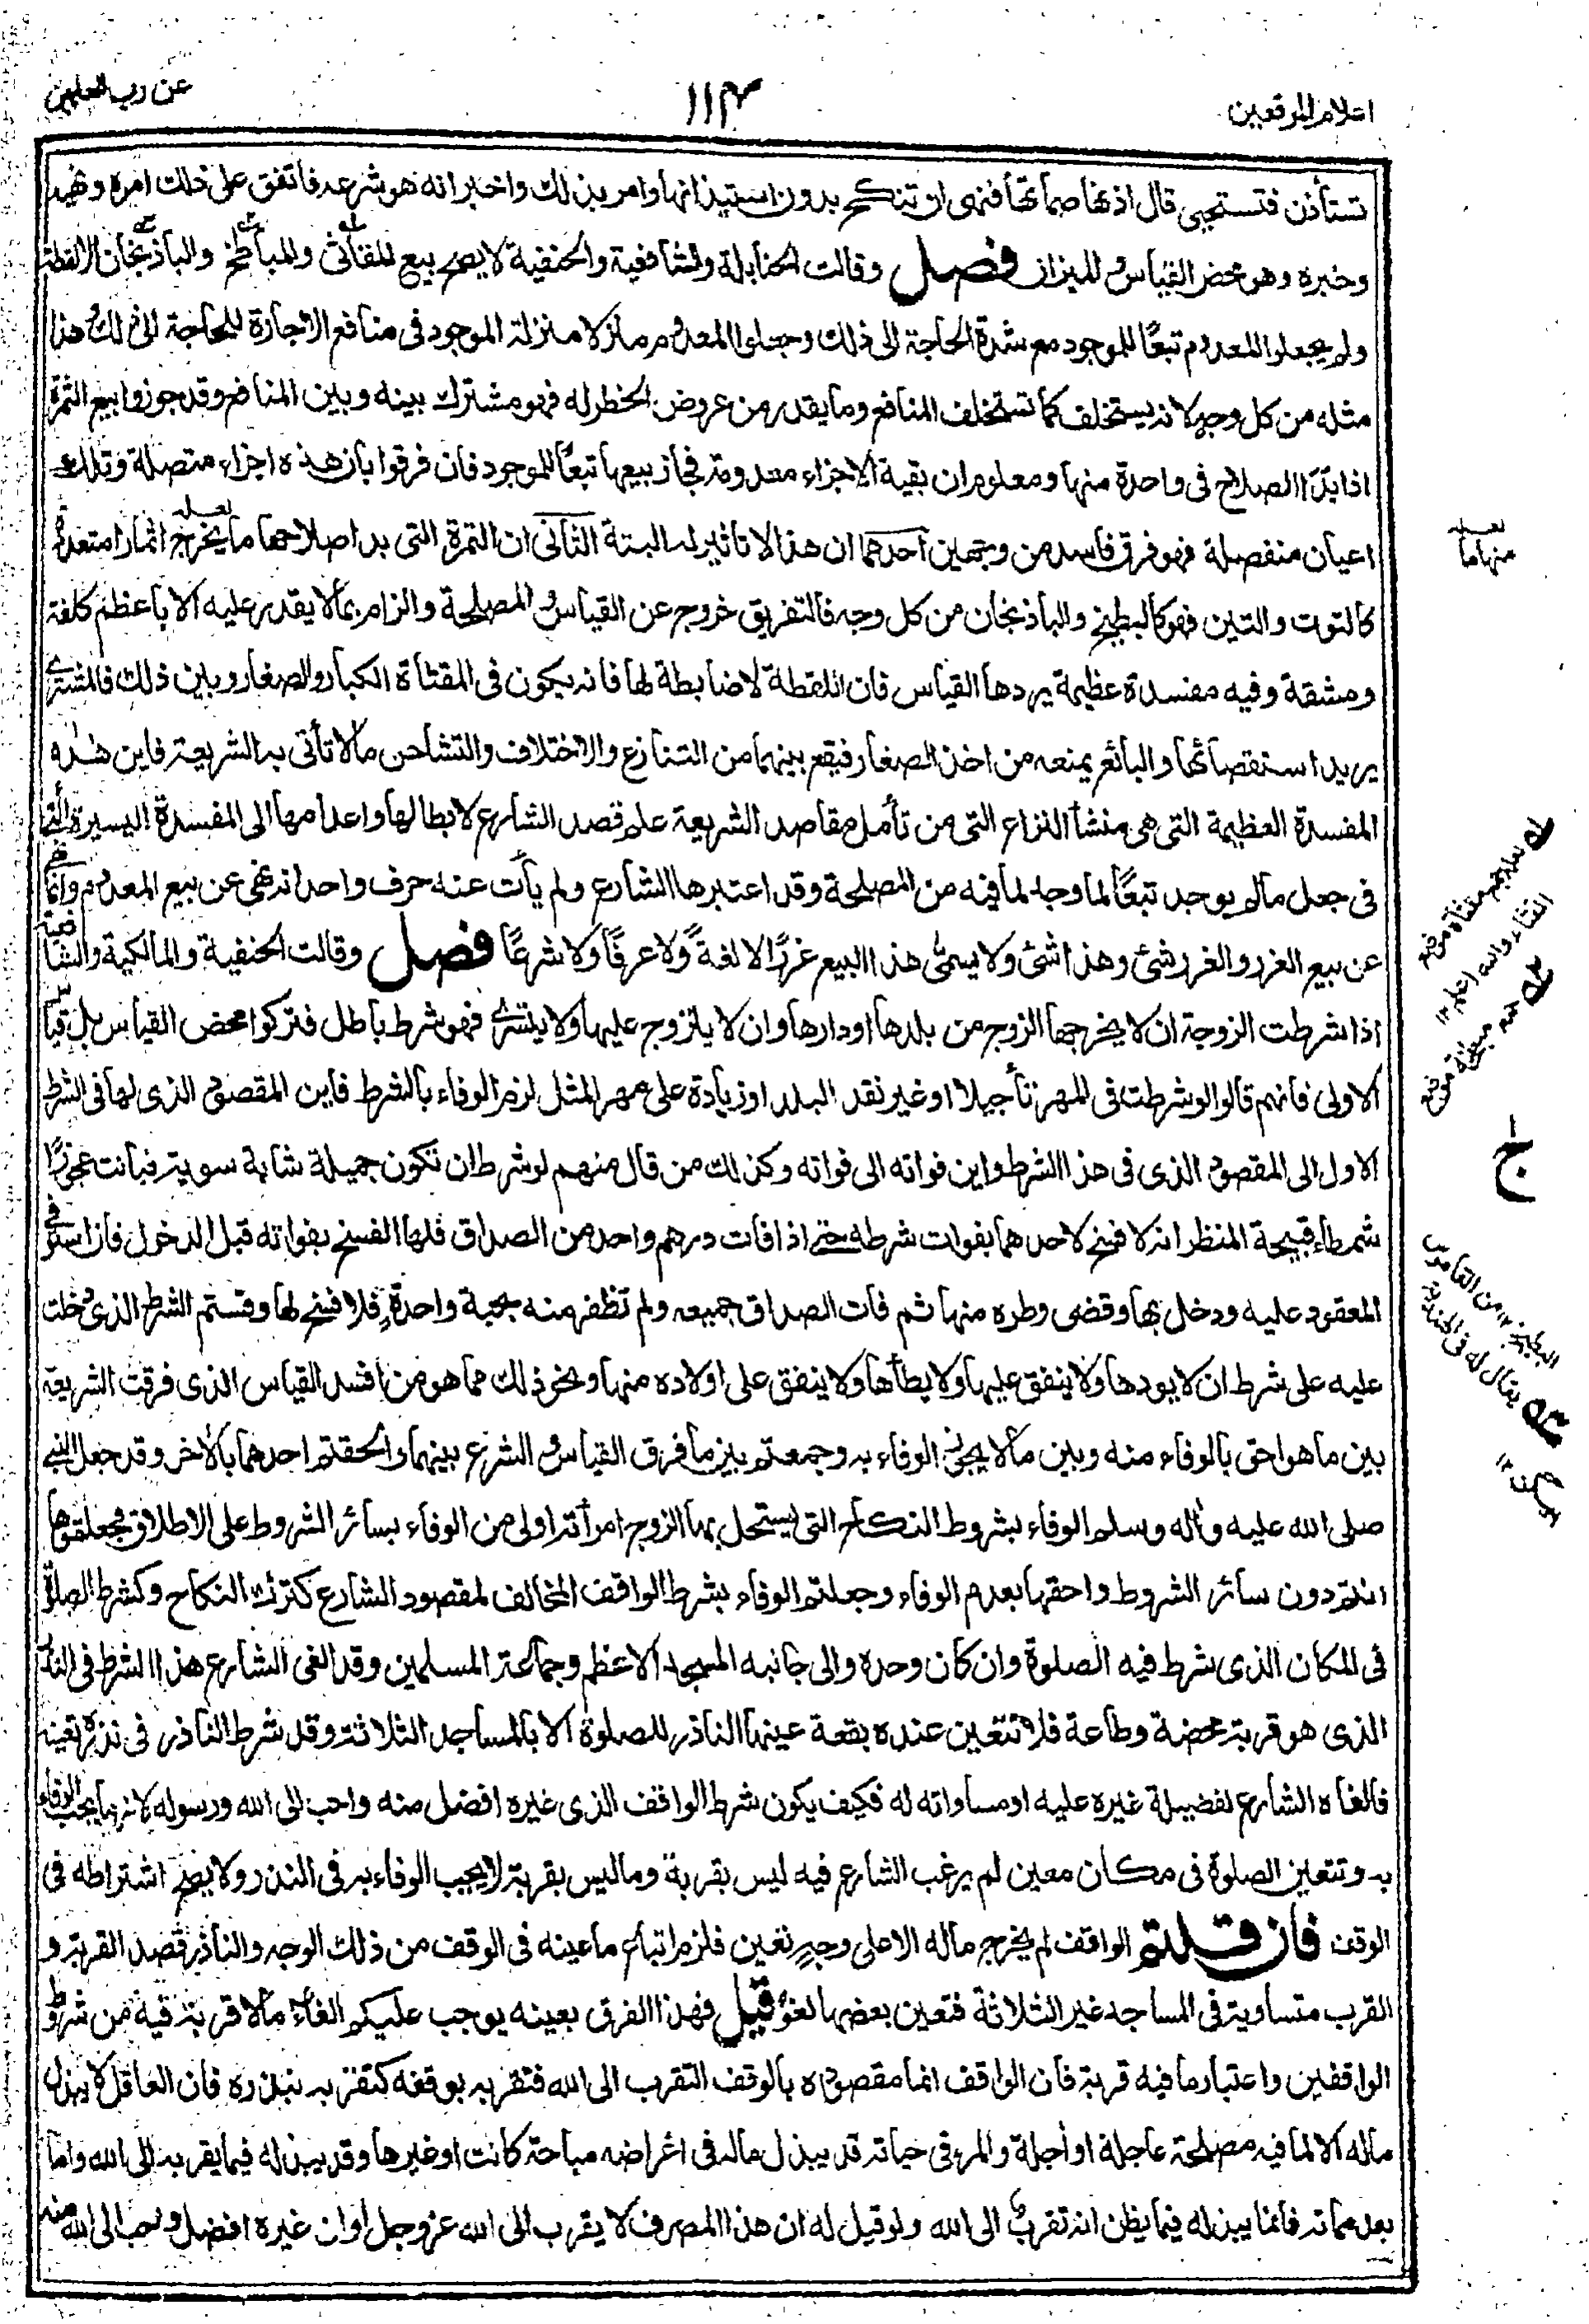 اعلام الموقعين
١١٣
عن رب العلمين
تستأذن فتستحيى قال اذنها صماتها فنهى ان تنكح بدون استيذانها وامر بذلك واخبر انه هو شرعه فاتفق على ذلك امره ونهيه
وخبره وهو محض القياس والميزان فصل وقالت الحنابلة والشافعية والحنفية لا يصح بيع المقاثى والمباطخ والباذنجان الا لقطة
ولم يجعلوا المعدوم تبعًا للموجود مع شدة الحاجة الى ذلك وجعلوا المعدوم منزلا منزلة الموجود فى منافع الاجارة للحاجة الى ذلك وهذا
مثله من كل وجه لانه يستخلف كما تستخلف المنافع وما يقدر من عروض الخطر له فهو مشترك بينه وبين المنافع وقد جوزوا بيع الثمرة
اذا بدا الصلاح فى واحدة منها ومعلوم ان بقية الاجزاء معدومة فجاز بيعها تبعًا للموجود فان فرقوا بان هذه اجزاء متصلة وتلك
اعيان منفصلة فهو فرق فاسد من وجهين احدهما ان هذا لا تاثير له البتة الثانى ان الثمرة التى بدا صلاحها ما يخرج اثمارا متعددة
كالتوت والتين فهو كالبطيخ والباذنجان من كل وجه فالتفريق خروج عن القياس والمصلحة والزام بما لا يقدر عليه الا باعظم كلفة
ومشقة وفيه مفسدة عظيمة يردها القياس فان اللقطة لا ضابطة لها فانه يكون فى المقثاة الكبار والصغار وبين ذلك فالمشترى
يريد استقصائها والبائع يمنعه من اخذ الصغار فيقع بينهما من التنازع والاختلاف والتشاحن ما لا تأتى به الشريعة فاين هذه
المفسدة العظيمة التى هى منشأ النزاع التى من تأمل مقاصد الشريعة علم قصد الشارع لابطالها واعدامها الى المفسدة اليسيرة التى
فى جعل ما لم يوجد تبعًا لما وجد لما فيه من المصلحة وقد اعتبرها الشارع ولم يأت عنه حرف واحد انه نهى عن بيع المعدوم وانما نهى
عن بيع الغرر والغرر شئ وهذا شئ ولا يسمى هذا البيع غررًا لا لغةً ولا عرفًا ولا شرعًا فصل وقالت الحنفية والمالكية والشافعية
اذا شرطت الزوجة ان لا يخرجها الزوج من بلدها او دارها وان لا يتزوج عليها ولا يتسرى فهو شرط باطل فتركوا محض القياس بل قياس
الاولى فانهم قالوا لو شرطت فى المهر تأجيلا او غير نقد البلد او زيادة على مهر المثل لزم الوفاء بالشرط فاين المقصود الذى لها فى الشرط
الاول الى المقصود الذى فى هذا الشرط واين فواته الى فواته وكذلك من قال منهم لو شرط ان تكون جميلة شابة سوية فبانت عجوزًا
شمطاء قبيحة المنظر انه لا فسخ لاحدهما بفوات شرطه حتى اذا فات درهم واحد من الصداق فلها الفسخ بفواته قبل الدخول فان استوفى
المعقود عليه ودخل بها وقضى وطره منها ثم فات الصداق جميعه ولم تظفر منه بحبة واحدةٍ فلا فسخ لها وقستم الشرط الذى دخلت
عليه على شرط ان لا يودها ولا ينفق عليها ولا يطأها ولا ينفق على اولاده منها ونحو ذلك مما هو من افسد القياس الذى فرقت الشريعة
بين ما هو احق بالوفاء منه وبين ما لا يجوز الوفاء به وجمعتم بين ما فرق القياس والشرع بينهما والحقتم احدهما بالاخر وقد جعل النبى
صلى الله عليه واله وسلم الوفاء بشروط النكاح التى يستحل بها الزوج امرأته اولى من الوفاء بسائر الشروط على الاطلاق فجعلتموها
انتم دون سائر الشروط واحقها بعدم الوفاء وجعلتم الوفاء بشرط الواقف المخالف لمقصود الشارع كترك النكاح وكشرط الصلوة
فى المكان الذى شرط فيه الصلوة وان كان وحده والى جانبه المسجد الاعظم وجماعة المسلمين وقد الغى الشارع هذا الشرط فى النذر
الذى هو قربة محضة وطاعة فلا تتعين عنده بقعة عينها الناذر للصلوة الا بالمساجد الثلاثة وقد شرط الناذر فى نذره تعينه
فالغاه الشارع لفضيلة غيره عليه او مساواته له فكيف يكون شرط الواقف الذى غيره افضل منه واحب الى الله ورسوله لازما يجب الوفاء
به وتتعين الصلوة فى مكان معين لم يرغب الشارع فيه ليس بقربة وما ليس بقربة لا يجب الوفاء به فى النذر ولا يصح اشتراطه فى
الوقف فان قلتم الواقف لم يخرج ماله الا على وجهٍ معين فلزم اتباع ما عينه فى الوقف من ذلك الوجه والناذر قصد القربة و
القرب متساوية فى المساجد غير الثلاثة فتعين بعضها لغو قيل فهذا الفرق بعينه يوجب عليكم الغاء ما لا قربة فيه من شروط
الواقفين واعتبار ما فيه قربة فان الواقف انما مقصوده بالوقف التقرب الى الله فتقربه بوقفه كتقربه بنذره فان العاقل لا يبذل
ماله الا لما فيه مصلحة عاجلة او أجلة والمرء فى حياته قد يبذل ماله فى اغراضه مباحة كانت او غيرها وقد يبذله فيما يقربه الى الله واما
بعد مماته فانما يبذله فيما يظن انه تقرب الى الله ولو قيل له ان هذا المصرف لا يقرب الى الله عز وجل او ان غيره افضل واحب الى الله منه
لعله
منها ما
له لعله جمع مقثاة موضع
القثاء والله اعلم ١٢
جمع مبطخة موضع
البطيخ ١٢ من القاموس
يقال له فى الهندية
ج